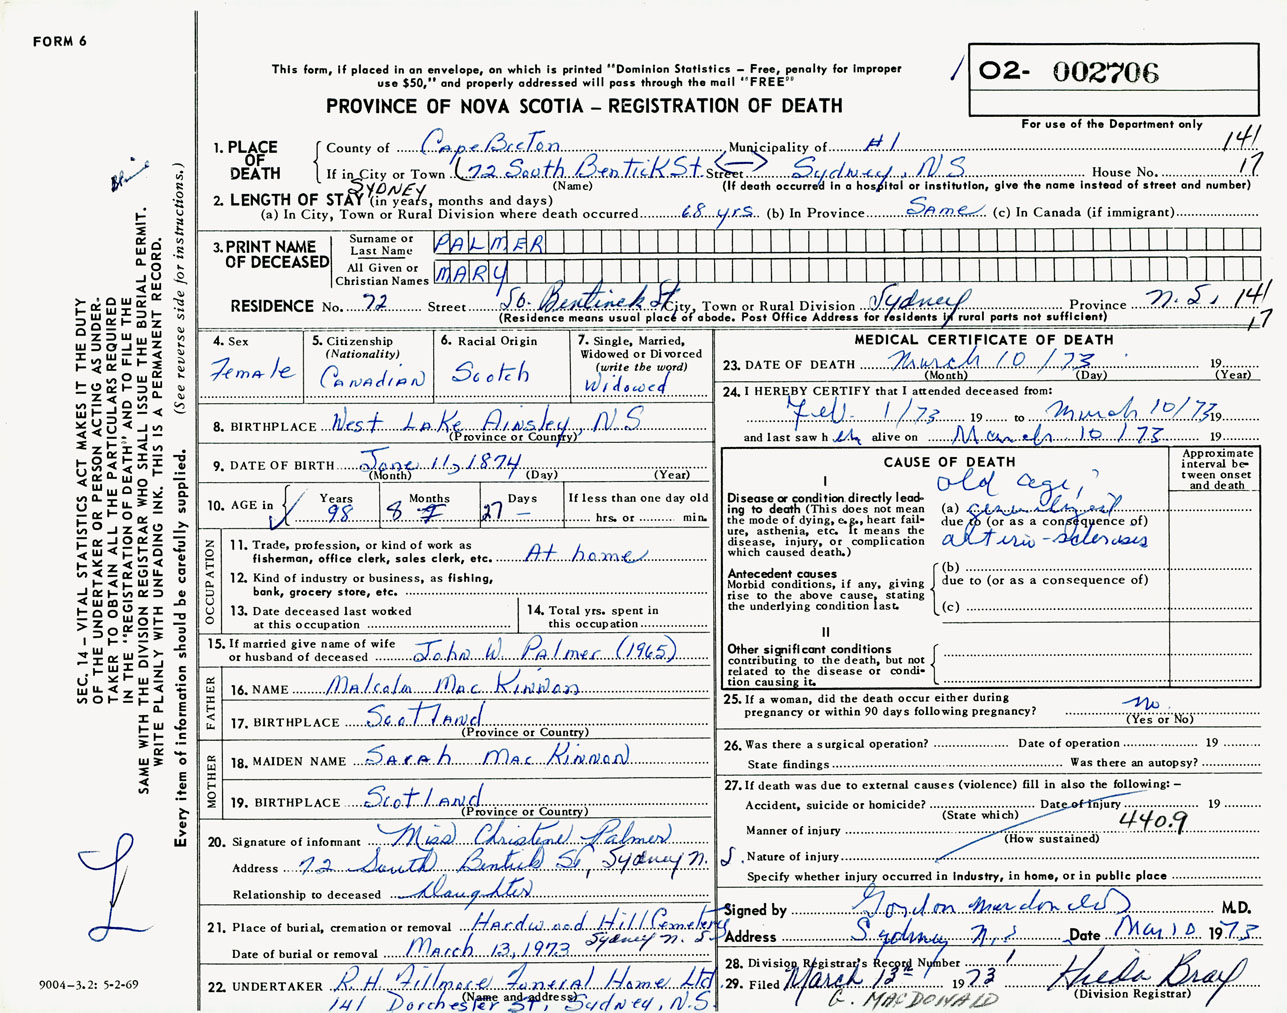 FORM 6
This form, if placed in an envelope, on which is printed "Dominion Statistics – Free, penalty for improper
use $50," and properly addressed will pass through the mail "FREE"
PROVINCE OF NOVA SCOTIA – REGISTRATION OF DEATH
02- 002706
For use of the Department only
1. PLACE OF DEATH
County of Cape Breton Municipality of #1 141
If in City or Town 72 South Bentick St. Street Sydney, N.S House No. 17
SYDNEY (Name) (If death occurred in a hospital or institution, give the name instead of street and number)
2. LENGTH OF STAY (in years, months and days)
(a) In City, Town or Rural Division where death occurred 68 yrs (b) In Province Same (c) In Canada (if immigrant)
3. PRINT NAME OF DECEASED
Surname or Last Name PALMER
All Given or Christian Names MARY
RESIDENCE No. 72 Street So. Bentinck St City, Town or Rural Division Sydney Province N.S. 141
(Residence means usual place of abode. Post Office Address for residents in rural parts not sufficient) 17
4. Sex
Female
5. Citizenship
(Nationality)
CANADIAN
6. Racial Origin
Scotch
7. Single, Married,
Widowed or Divorced
(write the word)
Widowed
8. BIRTHPLACE West Lake Ainsley, N.S
(Province or Country)
9. DATE OF BIRTH June 11, 1874
(Month) (Day) (Year)
10. AGE in Years Months Days If less than one day old
98 8 27 hrs. or min.
OCCUPATION
11. Trade, profession, or kind of work as
fisherman, office clerk, sales clerk, etc. At home
12. Kind of industry or business, as fishing,
bank, grocery store, etc.
13. Date deceased last worked
at this occupation
14. Total yrs. spent in
this occupation
15. If married give name of wife
or husband of deceased John W. Palmer (1965)
FATHER
16. NAME Malcolm MacKinnon
17. BIRTHPLACE Scotland
(Province or Country)
MOTHER
18. MAIDEN NAME Sarah MacKinnon
19. BIRTHPLACE Scotland
(Province or Country)
20. Signature of informant Miss Christene Palmer
Address 72 South Bentick St, Sydney N.S.
Relationship to deceased Daughter
21. Place of burial, cremation or removal Hardwood Hill Cemetery
Sydney N.S
Date of burial or removal March 13, 1973
22. UNDERTAKER R.H. Fillmore Funeral Home Ltd
(Name and address)
141 Dorchester St, Sydney, N.S.
MEDICAL CERTIFICATE OF DEATH
23. DATE OF DEATH March 10/73 19
(Month) (Day) (Year)
24. I HEREBY CERTIFY that I attended deceased from:
Feb. 1/73 19 to March 10/73 19
and last saw her alive on March 10/73 19
CAUSE OF DEATH
Approximate interval between onset and death
I
Disease or condition directly leading to death (This does not
mean the mode of dying, e.g., heart failure, asthenia, etc. It means the
disease, injury, or complication
which caused death.)
old age,
(a) generalized
due to (or as a consequence of)
arterio-sclerosis
Antecedent causes
Morbid conditions, if any, giving
rise to the above cause, stating
the underlying condition last.
(b)
due to (or as a consequence of)
(c)
II
Other significant conditions
contributing to the death, but not
related to the disease or condition causing it.
25. If a woman, did the death occur either during
pregnancy or within 90 days following pregnancy? no
(Yes or No)
26. Was there a surgical operation? Date of operation 19
State findings Was there an autopsy?
27. If death was due to external causes (violence) fill in also the following: –
Accident, suicide or homicide? Date of Injury 19
(State which)
Manner of injury 440.9
(How sustained)
Nature of injury
Specify whether injury occurred in industry, in home, or in public place
Signed by Gordon Macdonald M.D.
Address Sydney N.S Date Mar 10 1973
28. Division Registrar's Record Number
29. Filed March 13th 1973 Hilda Bray
(Division Registrar)
G. MACDONALD
SEC. 14 – VITAL STATISTICS ACT MAKES IT THE DUTY
OF THE UNDERTAKER OR PERSON ACTING AS UNDER-
TAKER TO OBTAIN ALL THE PARTICULARS REQUIRED
IN THE "REGISTRATION OF DEATH" AND TO FILE THE
SAME WITH THE DIVISION REGISTRAR WHO SHALL ISSUE THE BURIAL PERMIT.
WRITE PLAINLY WITH UNFADING INK. THIS IS A PERMANENT RECORD.
Every item of information should be carefully supplied. (See reverse side for instructions.)
9004-3.2: 5-2-69